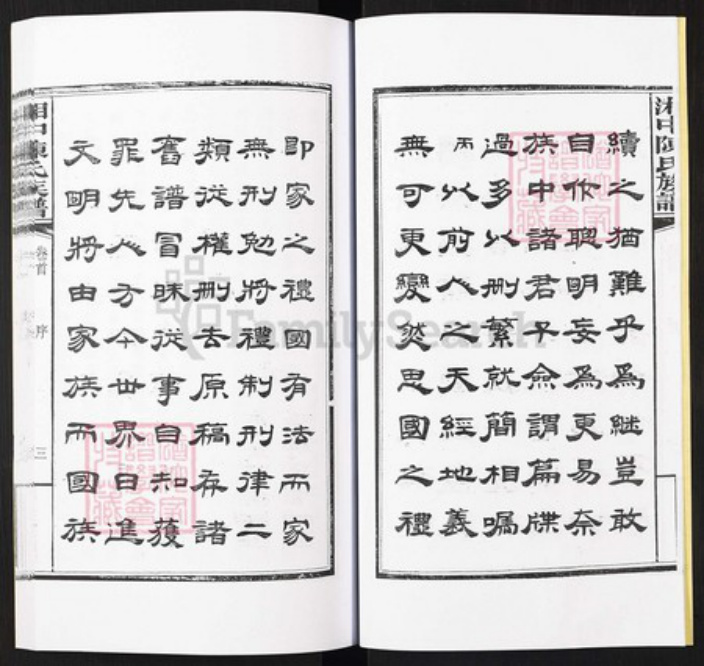 湘中陳氏族譜
續之猶難乎為繼豈敢
自作聰明妄為更易奈
族中諸君子僉謂篇牒
過多以刪繁就簡相囑
丙以前人之天經地義
無可更變然思國之禮
即家之禮國有法而家
無刑勉將禮制刑律二
類從權刪去原稿存諸
舊譜冒昧從事自知獲
罪先人方今世界日進
文明將由家族而國族
湘中陳氏族譜
卷首
序
三
FamilySearch